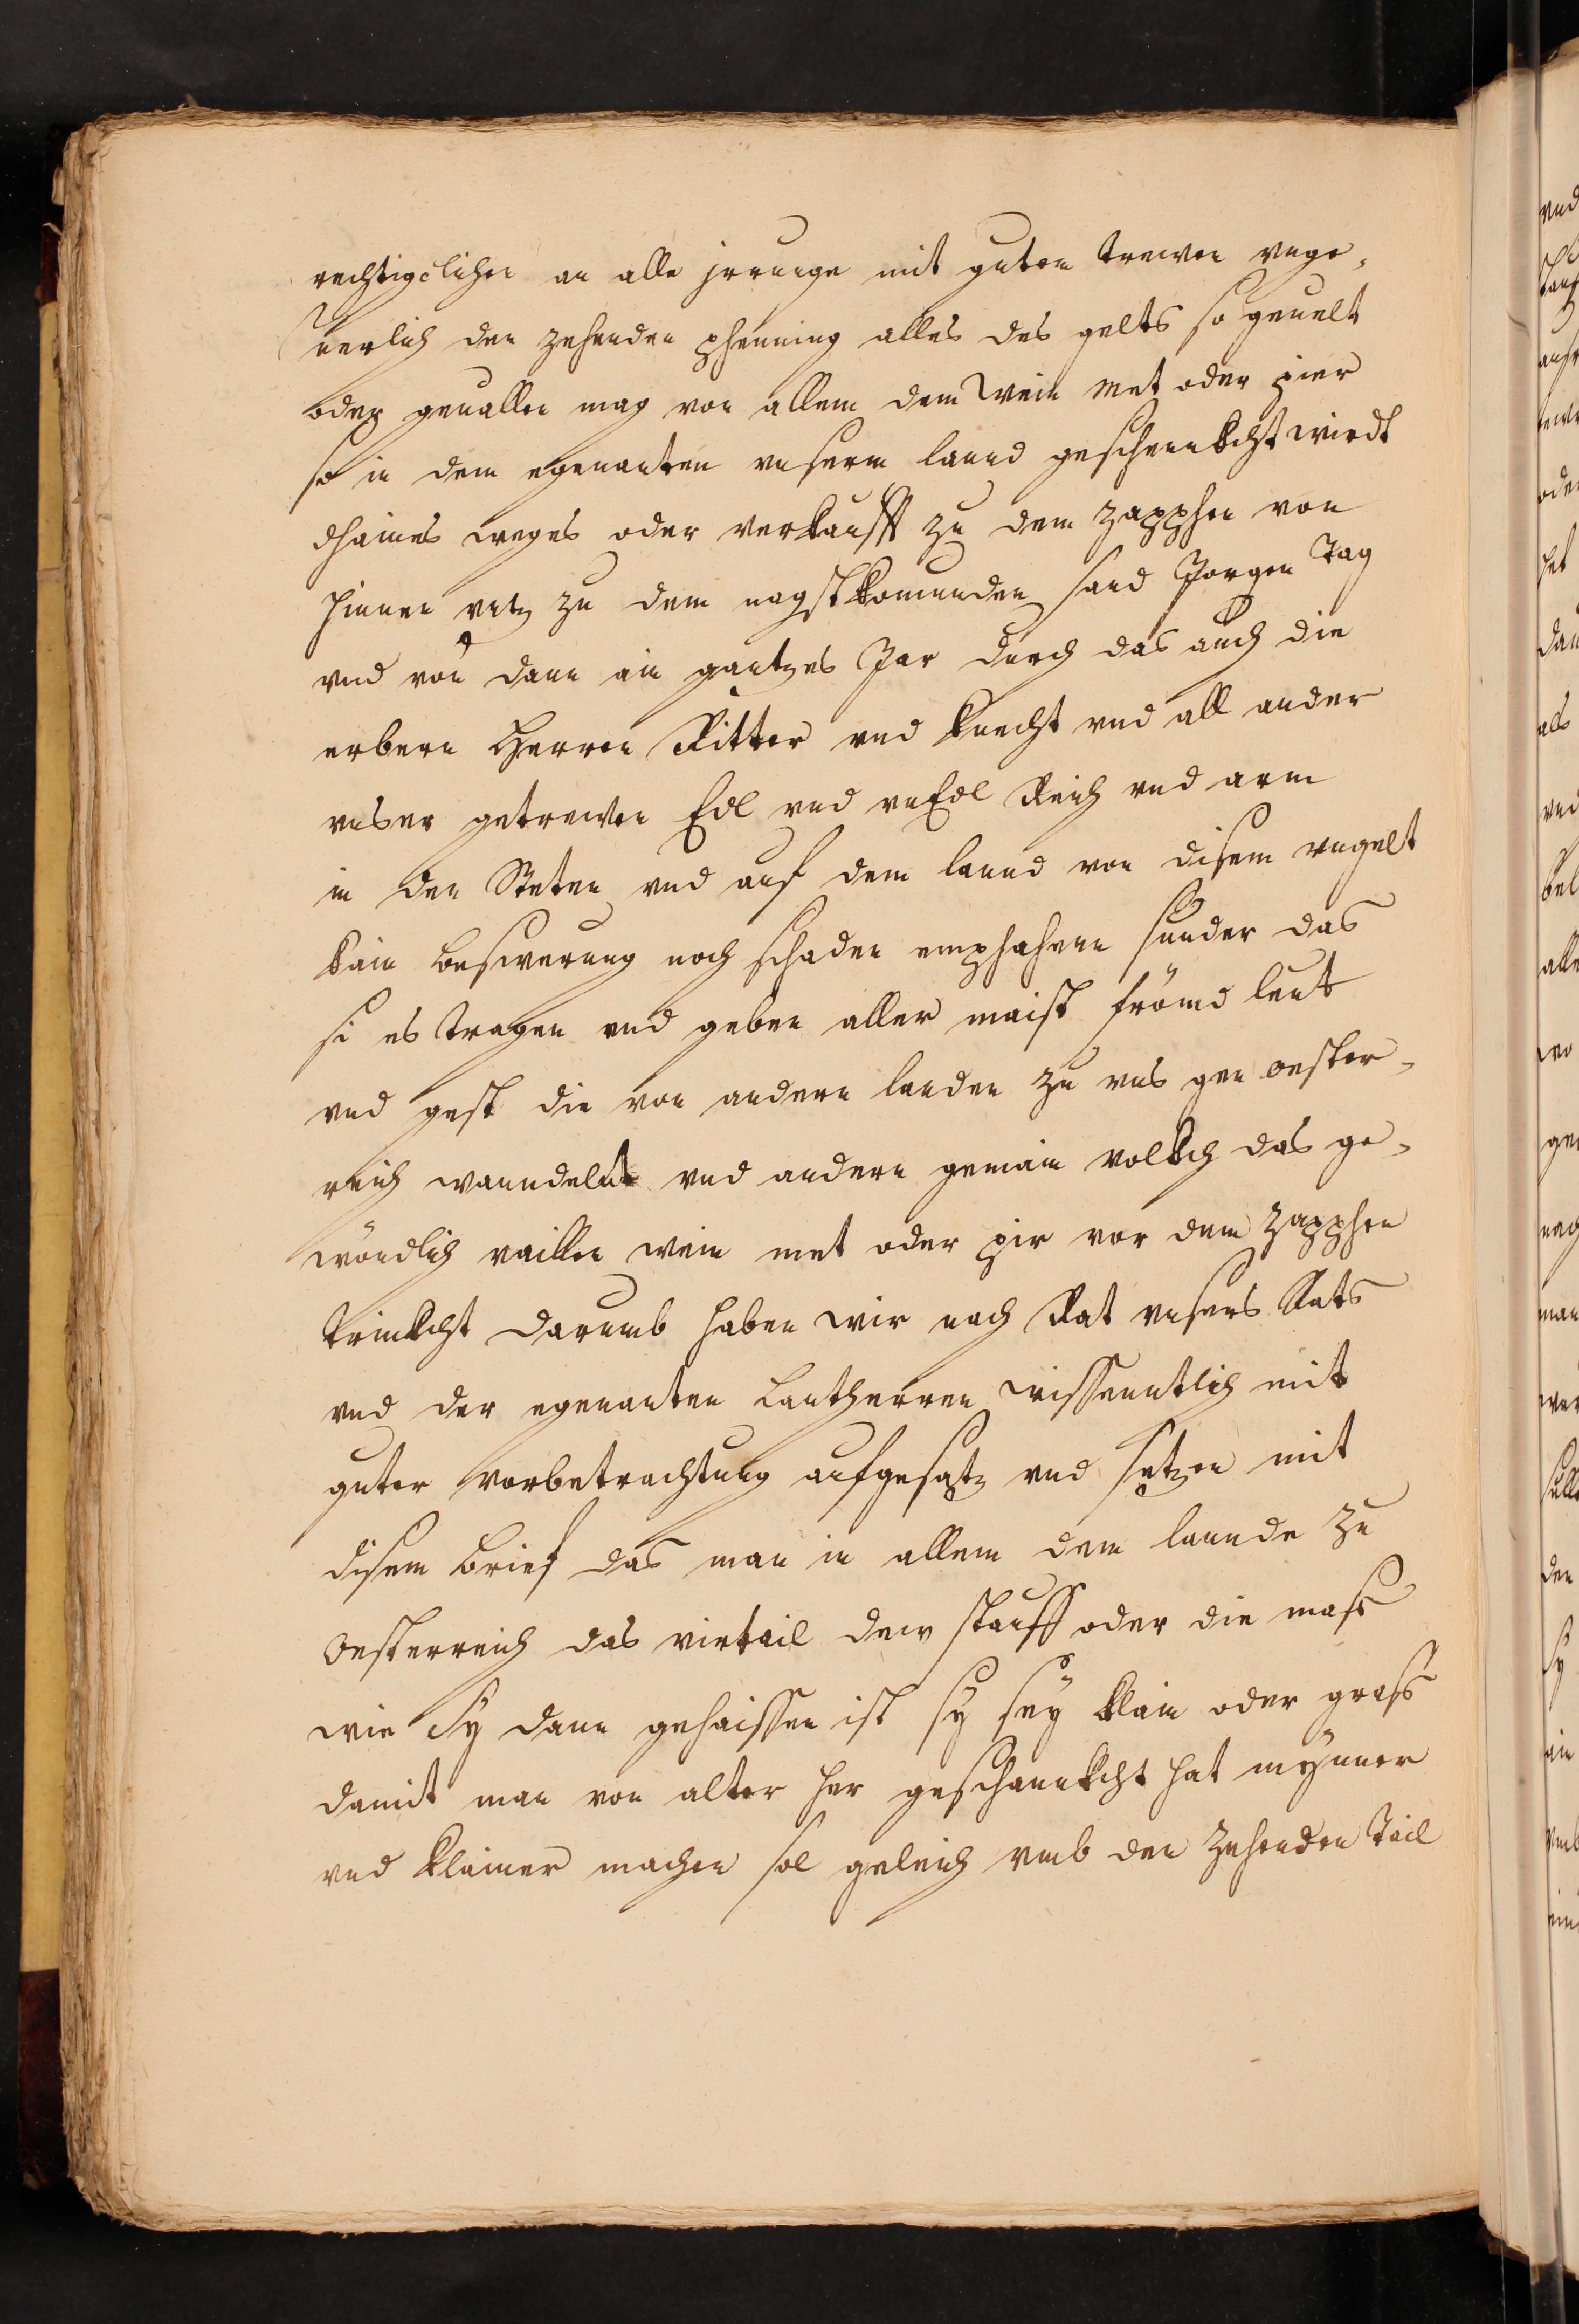 rechtigclichen an alle jrrunge mit guten trewen unge„
uerlich den zehenden phenning alles des gelts so geuelt
oder geuallen mag von allem dem wein met oder pier
so in dem egenanten unserm lannd geschennkcht wirdt
dhaines weges oder verkaufft zu dem zapphen von
hinnen untz zu dem nagstkomunden sand Jorgen Tag
vnd von dann ain gantzes Jar durch das auch die
erbern Herren Ritter vnd knecht vnd all ander
unser getrewen Edl vnd unEdl Reich vnd arm
in den Steten vnd auf dem lannd von disem ungelt
kain beswerung noch schaden emphahenn sunder das
si es tragen vnd geben aller maist frömd leut
vnd gest die von andern landen zu uns gen oester„
reich wanndelnt vnd andern gemain volkch das ge„
wöndlich vaillen wein met oder pir vor dem zapphen
trinkcht darumb haben wir nach Rat unsers Rats
vnd der egenanten Lantherren wissenntlich mit
guter vorbetrachtung aufgesatz vnd setzen mit
disem brief das man in allem dem lannde zu
Oesterreich das virtail dew stauff oder die mass
wie Sy dann gehaissen ist sy sey klain oder gross
damit man von alter her geschannkcht hat mynner
vnd klainer machen sol geleich umb den zehenden Tail